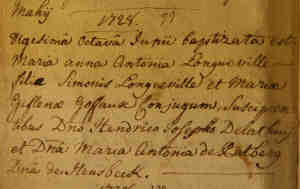 Maÿ
1728.
Vigesima octava Junii baptizata est
Maria anna Antonia Longueville
filia Simonis Longueville et Mariæ
Gossaux Conjugum, Suscipien
tibus Dno Henrico Josepho
et Dnâ Maria Antonia de
Dnâ de Heusbeek.